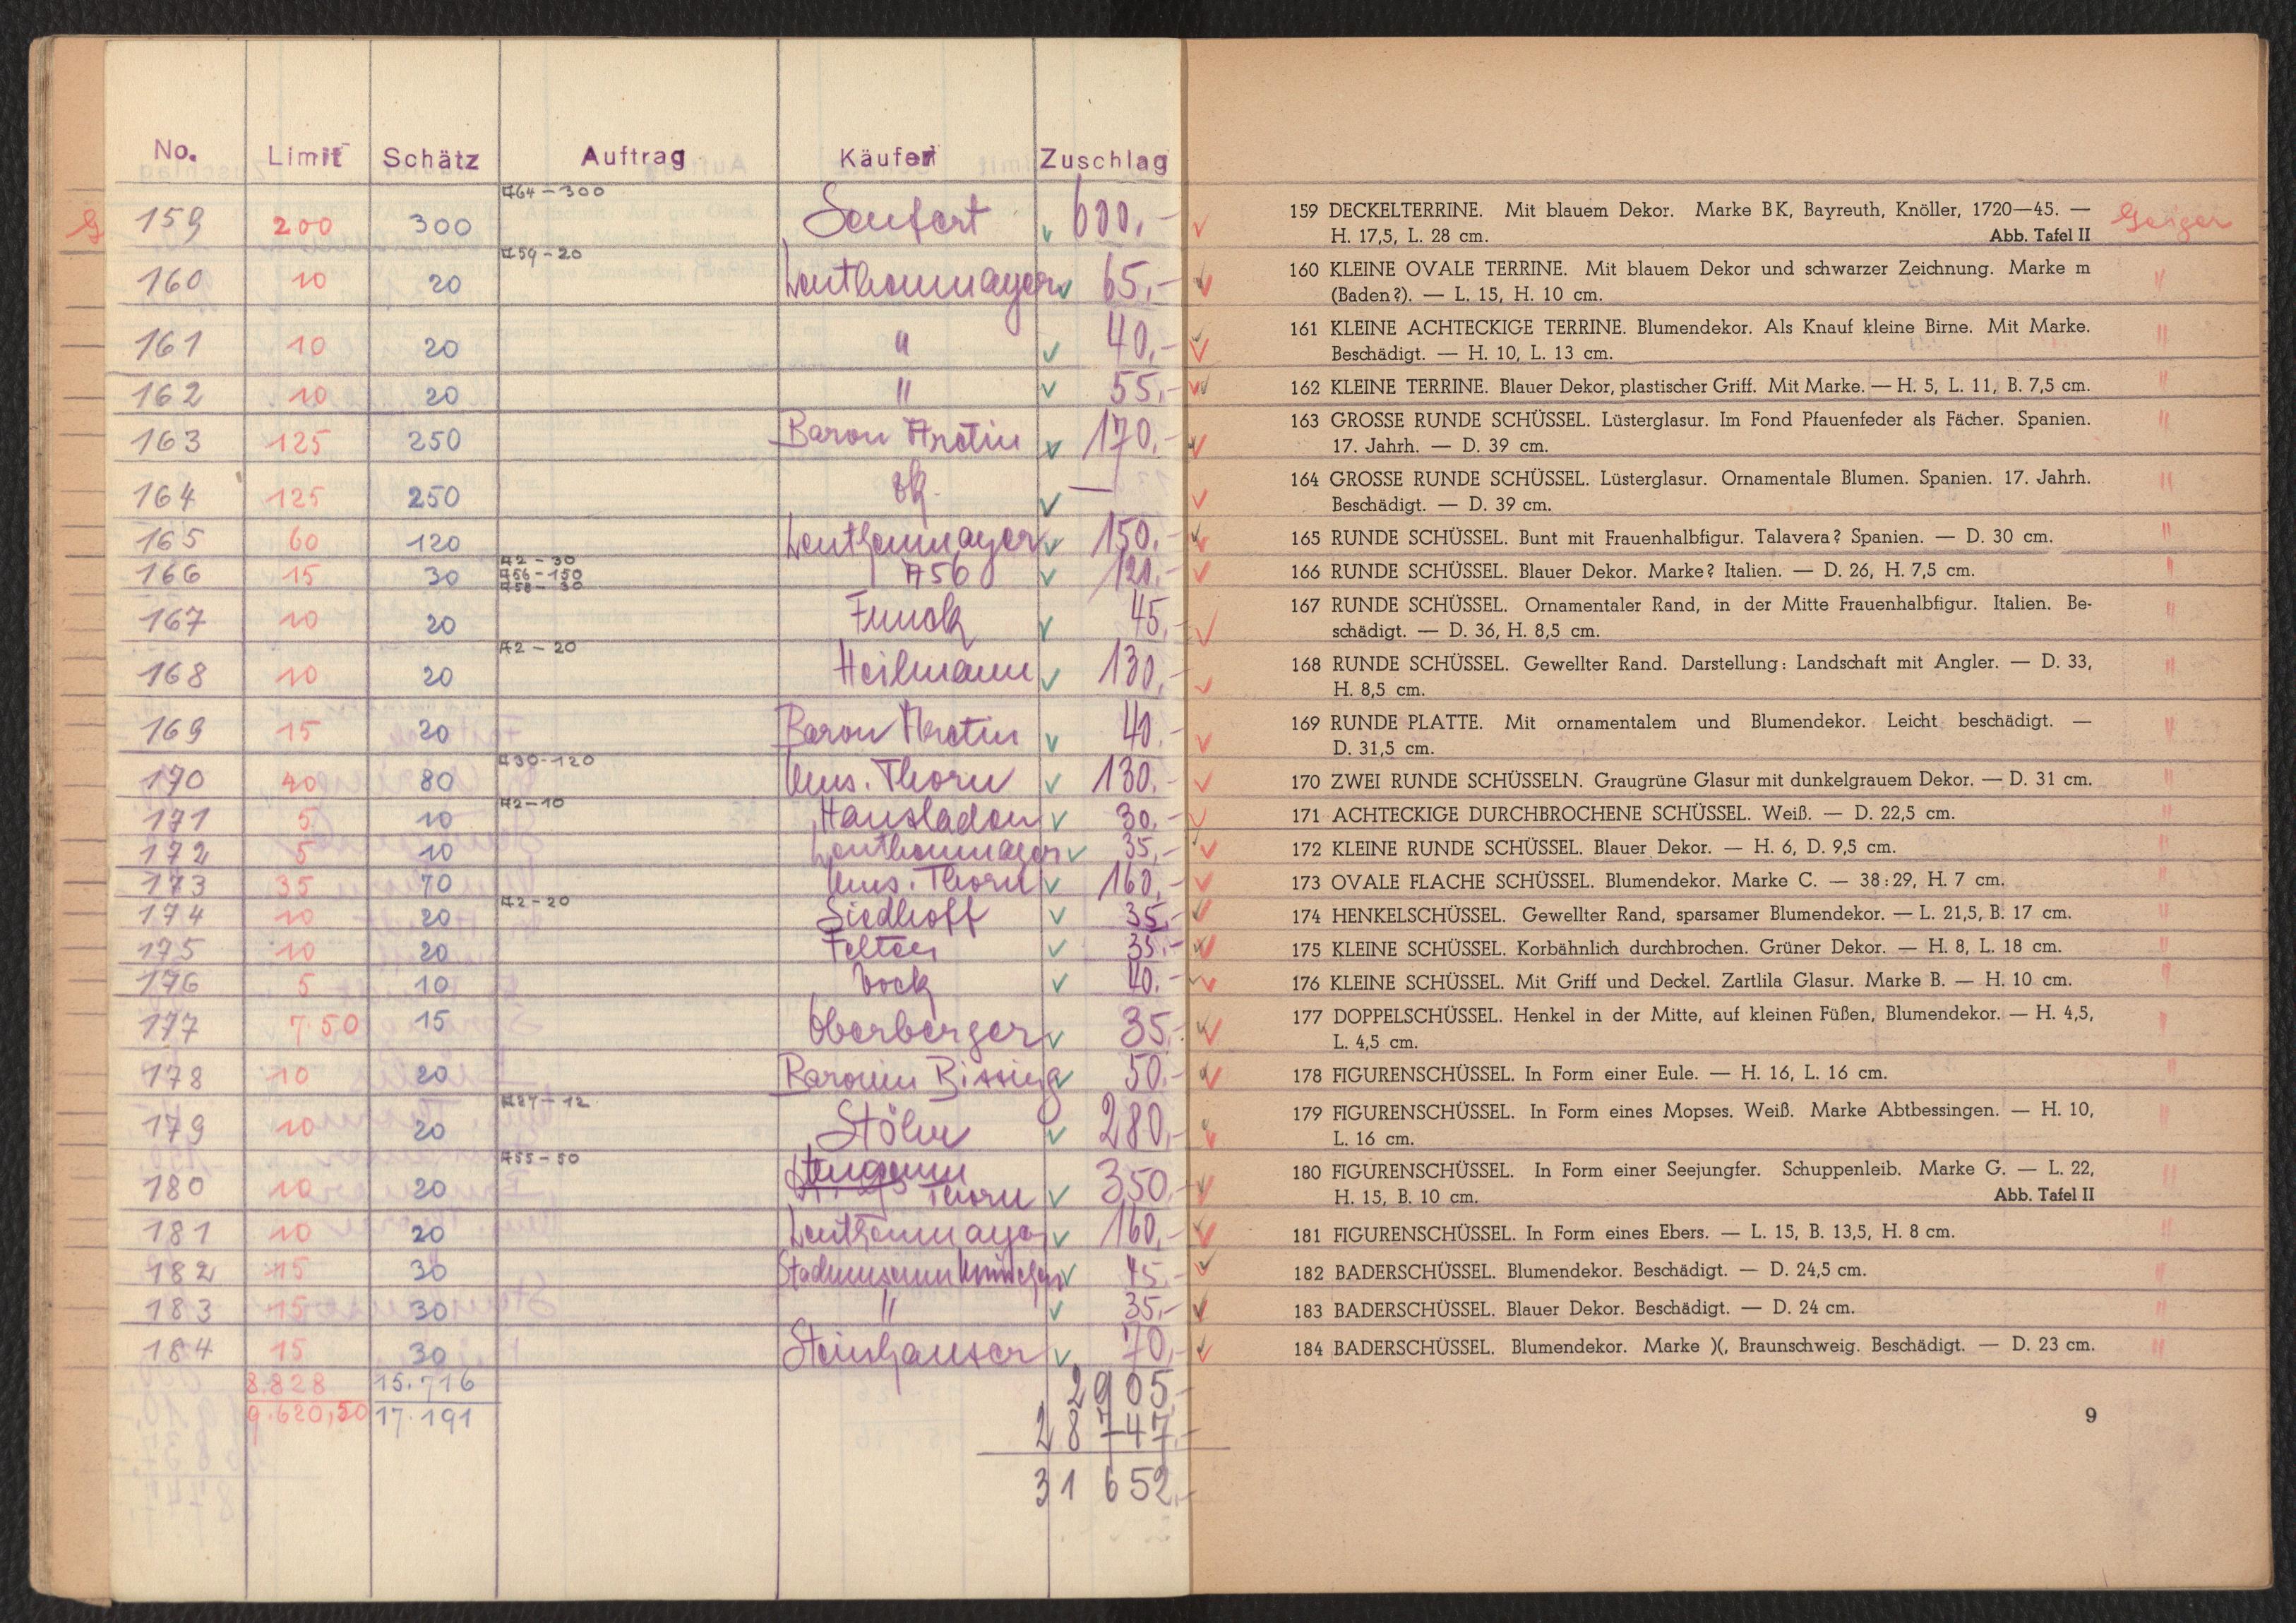 No. Limit Schätz Auftrag Käufer Zuschlag
A64 – 300
159 200 300 Seufert 600,-
A59 - 20
160 10 20 Leuthenmayer 65,-
161 10 20 " 40,-
162 10 20 " 55,-
163 125 250 Baron Aretin 170,-
164 125 250 —
165 60 120 Leuthenmayer 150,-
A2 - 30
166 15 30 A56 - 150 A56 120,-
A58 - 30
167 10 20 Funck 45,-
A2 - 20
168 10 20 Heilmann 130,-
169 15 20 Baron Aretin 40.-
A30-120
170 40 80 Mus. Thorn 130.-
A2-10
171 5 10 Hausladen 30,-
172 5 10 Leuthenmayer 35,-
173 35 70 Mus. Thorn 160,-
A2-20
174 10 20 Siedhoff 35,-
175 10 20 Felten 35.-
176 5 10 Bock 40.-
177 7.50 15 Oberberger 35,-
178 10 20 Baronin Bissing 50.-
A27-12
179 10 20 Stöhr 280,-
A55-50
180 10 20 Thorn 350,-
181 10 20 Leuthenmayer 160,-
182 15 30 45.-
183 15 30 " 35,-
184 15 30 Steinhauser 70,-
8.828 15.716 2905,-
9.620,50 17.191 28747,-
31652,-
G
159 DECKELTERRINE. Mit blauem Dekor. Marke BK, Bayreuth, Knöller, 1720—45. — Geiger
H. 17,5, L. 28 cm. Abb. Tafel II
160 KLEINE OVALE TERRINE. Mit blauem Dekor und schwarzer Zeichnung. Marke m "
(Baden?). — L. 15, H. 10 cm.
161 KLEINE ACHTECKIGE TERRINE. Blumendekor. Als Knauf kleine Birne. Mit Marke. "
Beschädigt. — H. 10, L. 13 cm.
162 KLEINE TERRINE. Blauer Dekor, plastischer Griff. Mit Marke. — H. 5, L. 11, B. 7,5 cm. "
163 GROSSE RUNDE SCHÜSSEL. Lüsterglasur. Im Fond Pfauenfeder als Fächer. Spanien. "
17. Jahrh. — D. 39 cm.
164 GROSSE RUNDE SCHÜSSEL. Lüsterglasur. Ornamentale Blumen. Spanien. 17. Jahrh. "
Beschädigt. — D. 39 cm.
165 RUNDE SCHÜSSEL. Bunt mit Frauenhalbfigur. Talavera? Spanien. — D. 30 cm. "
166 RUNDE SCHÜSSEL. Blauer Dekor. Marke? Italien. — D. 26, H. 7,5 cm. "
167 RUNDE SCHÜSSEL. Ornamentaler Rand, in der Mitte Frauenhalbfigur. Italien. Be- "
schädigt. — D. 36, H. 8,5 cm.
168 RUNDE SCHÜSSEL. Gewellter Rand. Darstellung: Landschaft mit Angler. — D. 33, "
H. 8,5 cm.
169 RUNDE PLATTE. Mit ornamentalem und Blumendekor. Leicht beschädigt. — "
D. 31,5 cm.
170 ZWEI RUNDE SCHÜSSELN. Graugrüne Glasur mit dunkelgrauem Dekor. — D. 31 cm. "
171 ACHTECKIGE DURCHBROCHENE SCHÜSSEL. Weiß. — D. 22,5 cm. "
172 KLEINE RUNDE SCHÜSSEL. Blauer Dekor. — H. 6, D. 9,5 cm. "
173 OVALE FLACHE SCHÜSSEL. Blumendekor. Marke C. — 38:29, H. 7 cm. "
174 HENKELSCHÜSSEL. Gewellter Rand, sparsamer Blumendekor. — L. 21,5, B. 17 cm. "
175 KLEINE SCHÜSSEL. Korbähnlich durchbrochen. Grüner Dekor. — H. 8, L. 18 cm. "
176 KLEINE SCHÜSSEL. Mit Griff und Deckel. Zartlila Glasur. Marke B. — H. 10 cm. "
177 DOPPELSCHÜSSEL. Henkel in der Mitte, auf kleinen Füßen, Blumendekor. — H. 4,5, "
L. 4,5 cm.
178 FIGURENSCHÜSSEL. In Form einer Eule. — H. 16, L. 16 cm. "
179 FIGURENSCHÜSSEL. In Form eines Mopses. Weiß. Marke Abtbessingen. — H. 10, "
L. 16 cm.
180 FIGURENSCHÜSSEL. In Form einer Seejungfer. Schuppenleib. Marke G. — L. 22, "
H. 15, B. 10 cm. Abb. Tafel II
181 FIGURENSCHÜSSEL. In Form eines Ebers. — L. 15, B. 13,5, H. 8 cm. "
182 BADERSCHÜSSEL. Blumendekor. Beschädigt. — D. 24,5 cm. "
183 BADERSCHÜSSEL. Blauer Dekor. Beschädigt. — D. 24 cm. "
184 BADERSCHÜSSEL. Blumendekor. Marke )(, Braunschweig. Beschädigt. — D. 23 cm. "
9